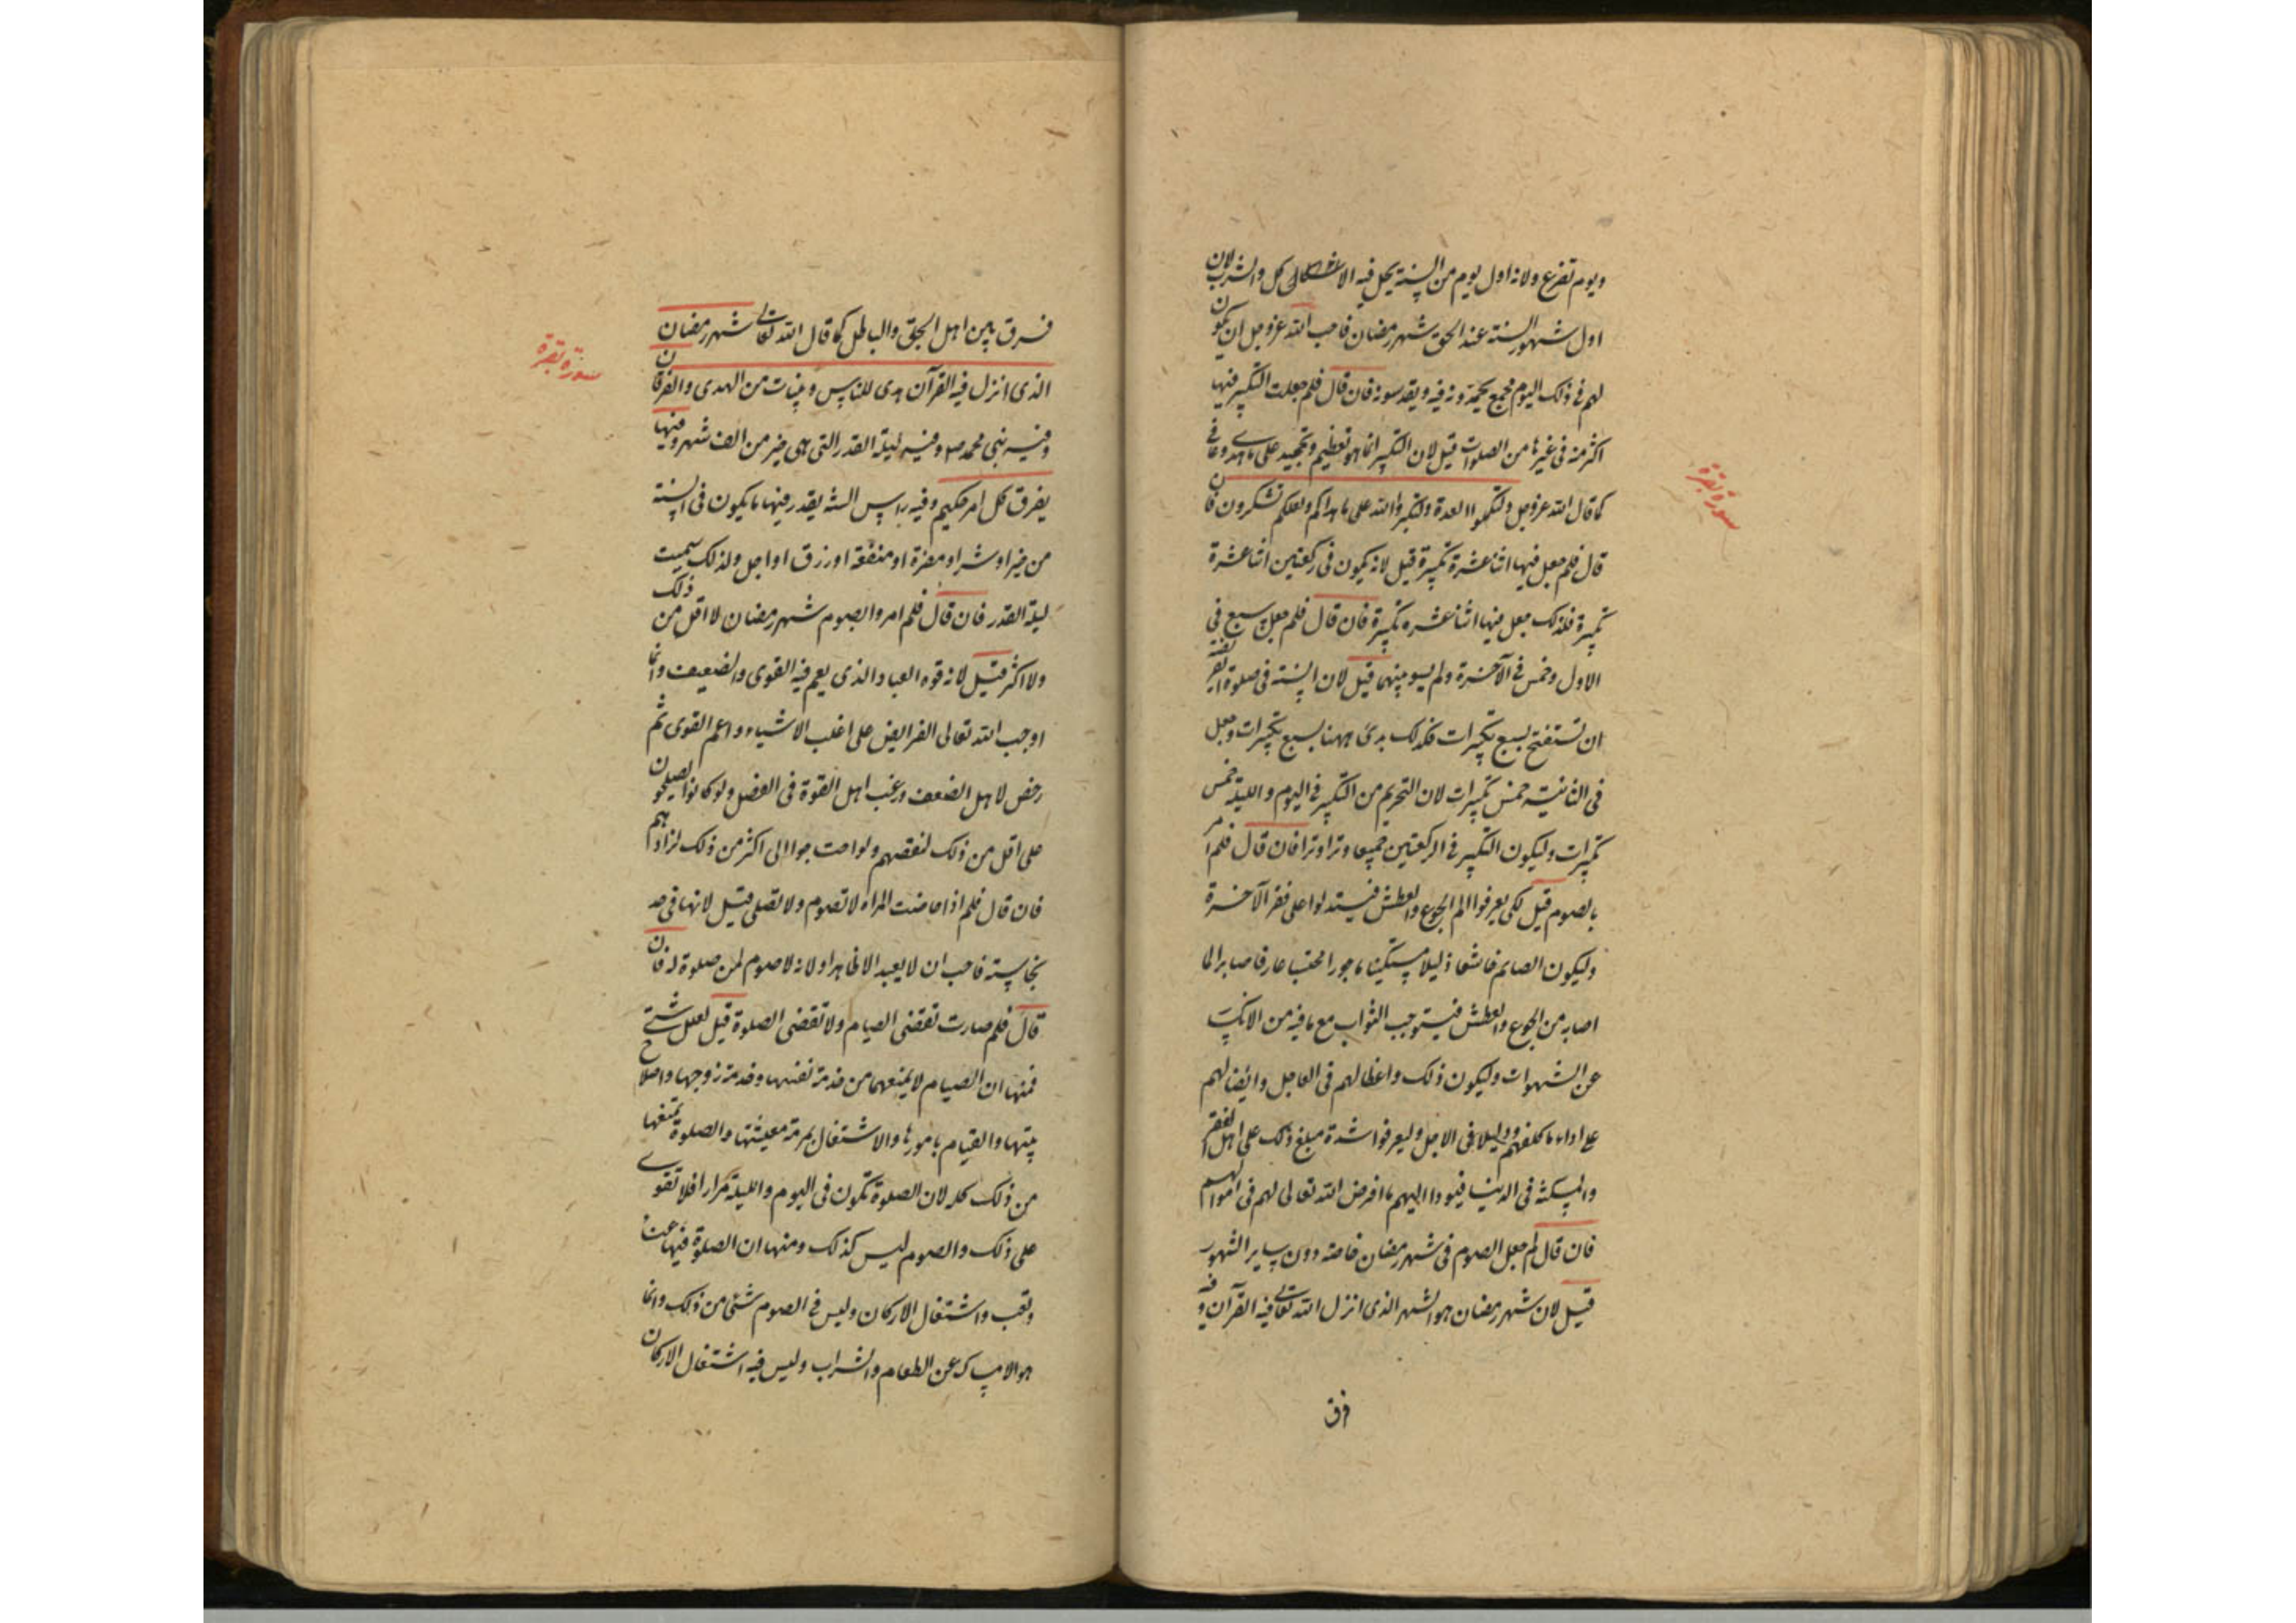 ويوم تضرع ولانه اول يوم من السنة يحل فيه الاكل والشرب لان
اول شهور السنة عند الحق شهر رمضان فاحب الله عزوجل ان يكون
لهم فى ذلك اليوم مجمع يحمدونه فيه ويقدسونه فان قال فلم جعلت التكبير فيها
اكثر منه فى غيرها من الصلوات قيل لان التكبير انما هو تعظيم وتمجيد على ما هدى وعافى
كما قال الله عزوجل ولتكملوا العدة ولتكبروا الله على ما هداكم ولعلكم تشكرون فان
قال فلم جعل فيها اثنا عشرة تكبيرة قيل لانه يكون فى ركعتين اثنا عشرة
تكبيرة فلذلك جعل فيها اثنا عشره تكبيرة فان قال فلم جعل سبع فى
الاول وخمس فى الآخرة ولم يسو بينهما قيل لان السنة فى صلوة الفريضة
ان تستفتح بسبع تكبيرات فكذلك بدئ ههنا بسبع تكبيرات وجعل
فى الثانية خمس تكبيرات لان التحريم من التكبير فى اليوم والليلة خمس
تكبيرات وليكون التكبير فى الركعتين جميعا وترا وترا فان قال فلم امر
بالصوم قيل لكى يعرفوا الم الجوع والعطش فيستدلوا على فقر الآخرة
وليكون الصائم خاشعا ذليلا مستكينا ماجورا محتسبا عارفا صابرا لما
اصابه من الجوع والعطش فيستوجب الثواب مع ما فيه من الانكسار
عن الشهوات وليكون ذلك واعظا لهم فى العاجل ورائضا لهم
على اداء ما كلفهم ودليلا فى الاجل وليعرفوا شدة مبلغ ذلك على اهل الفقر
والمسكنة فى الدنيا فيودوا اليهم ما افرض الله تعالى لهم فى اموالهم
فان قال لم جعل الصوم فى شهر رمضان خاصة دون ساير الشهور
قيل لان شهر رمضان هو الشهر الذى انزل الله تعالى فيه القرآن وفيه
فرق
سورة بقرة
فرق بين اهل الحق والباطل كما قال الله تعالى شهر رمضان
الذى انزل فيه القرآن هدى للناس وبينات من الهدى والفرقان
وفيه نبى محمد ص وفيه ليلة القدر التى هى خير من الف شهر وفيها
يفرق كل امر حكيم وفيه راس السنة يقدر فيها ما يكون فى السنة
من خير او شر او مضرة او منفعة او رزق او اجل ولذلك سميت
ليلة القدر فان قال فلم امروا بصوم شهر رمضان لا اقل من ذلك
ولا اكثر قيل لانه قوه العباد الذى يعم فيه القوى والضعيف وانما
اوجب الله تعالى الفرايض على اغلب الاشياء واعم القوى ثم
رخص لاهل الضعف ورغب اهل القوة فى الفضل ولو كانوا يصلحون
على اقل من ذلك لنقصهم ولو احتاجوا الى اكثر من ذلك لزادهم
فان قال فلم اذا حاضت المراه لا تصوم ولا تصلى قيل لانها فى حد
نجاسة فاحب ان لا يعبد الا طاهرا ولانه لا صوم لمن لا صلوة له فان
قال فلم صارت تقضى الصيام ولا تقضى الصلوة قيل لعلل شتى
فمنها ان الصيام لا يمنعها من خدمة نفسها وخدمة زوجها واصلاح
بيتها والقيام بامورها والاشتغال بمرمة معيشتها والصلوة تمنعها
من ذلك كله لان الصلوة تكون فى اليوم والليلة مرارا فلا تقوى
على ذلك والصوم ليس كذلك ومنها ان الصلوة فيها عناء
وتعب واشتغال الاركان وليس فى الصوم شئ من ذلك وانما
هو الامساك عن الطعام والشراب وليس فيه اشتغال الاركان
سورة بقرة